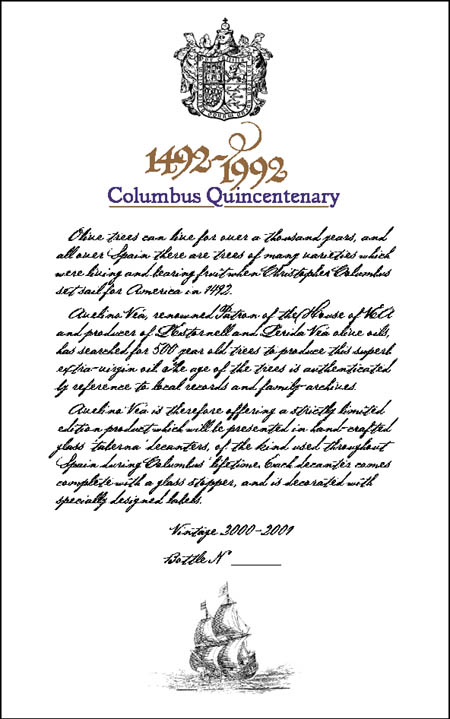 1492-1992
Columbus Quincentenary
Olive trees can live for over a thousand years, and
all over Spain there are trees of many varieties which
were living and bearing fruit when Christopher Columbus
set sail for America in 1492.
Avelino Vea, renowned Patron of the House of VEA
and producer of L'Estornell and Lerida Vea olive oils,
has searched for 500 year old trees to produce this superb
extra-virgin oil. The age of the trees is authenticated
by reference to local records and family archives.
Avelino Vea is therefore offering a strictly limited
edition product which will be presented in hand-crafted
glass 'taberna' decanters, of the kind used throughout
Spain during Columbus' lifetime. Each decanter comes
complete with a glass stopper, and is decorated with
specially designed labels.
Vintage 2000-2001
Bottle Nº